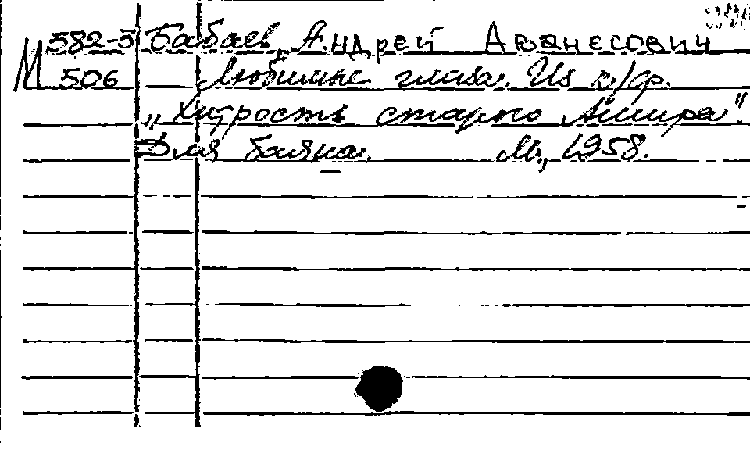 М 582-3 Бабаев, Андрей Аванесович
506 Любимые глаза. Из к/ф.
„Хитрость старого Ашира".
Для баяна. М., 1958.